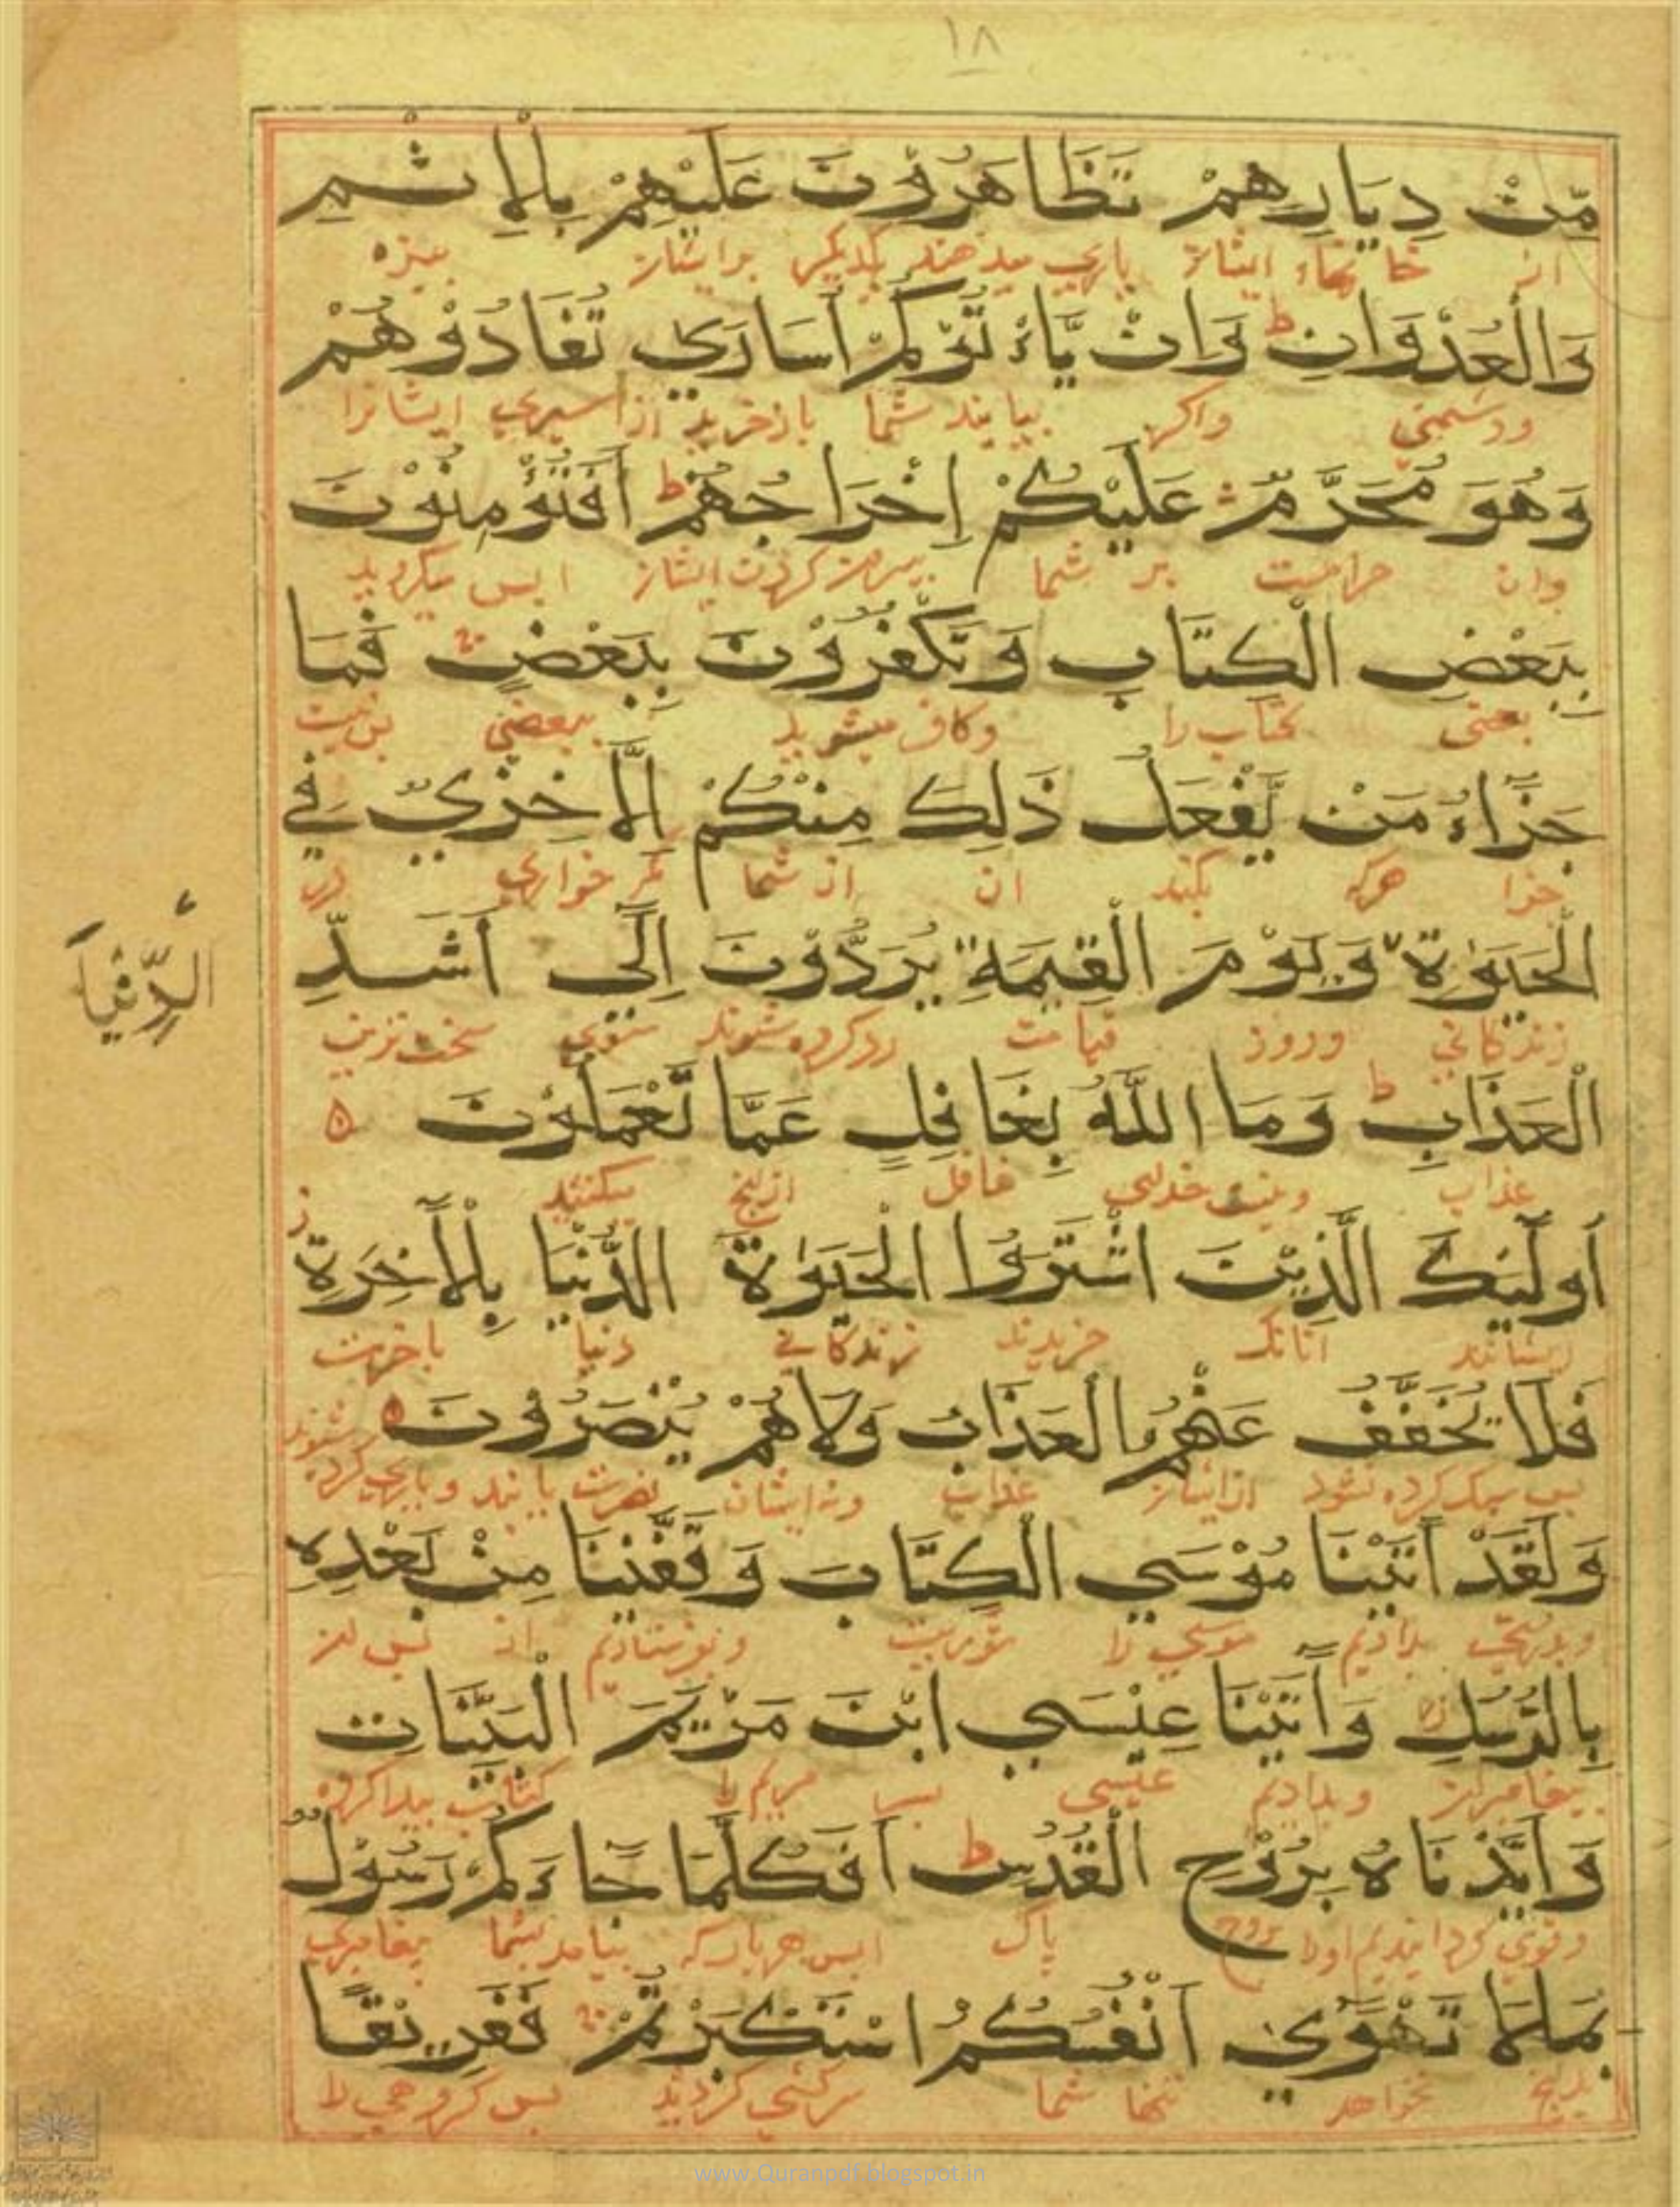 ١٨
مِّنْ دِيَارِهِمْ تَظَاهَرُوْنَ عَلَيْهِمْ بِالْاِثْمِ
از خانهاء ایشان یاری میدهند یکدیگر بر ایشان ببزه
وَالْعُدْوَانِ ط وَاِنْ يَّاْتُوْكُمْ اُسَارَي تُفَادُوْهُمْ
ودشمنی واگر بیایند شما باز خرید از اسیری ایشانرا
وَهُوَ مُحَرَّمٌ عَلَيْكُمْ اِخْرَاجُهُمْ ط اَفَتُؤْمِنُوْنَ
وان حرامست بر شما بیرون کردن ایشان ایس میگروید
بِبَعْضِ الْكِتَابِ وَتَكْفُرُوْنَ بِبَعْضٍ فَمَا
بعضی کتاب را وکافر میشوید ببعضی پس نیست
جَزَاءُ مَنْ يَّفْعَلُ ذٰلِكَ مِنْكُمْ اِلَّا خِزْيٌ فِي
جزا هرکه بکند ان از شما مگر خواری در
الْحَيٰوةِ وَيَوْمَ الْقِيٰمَةِ يُرَدُّوْنَ اِلَى اَشَدِّ
الدُّنْيَا
زندکانی وروز قیامت رد کرده شوند سوی سخت ترین
الْعَذَابِ ط وَمَا اللّٰهُ بِغَافِلٍ عَمَّا تَعْمَلُوْنَ ه
عذاب ونیست خدای غافل ازانچ میکنند
اُولٰئِكَ الَّذِيْنَ اشْتَرَوُا الْحَيٰوةَ الدُّنْيَا بِالْاٰخِرَةِ ز
ایشانند انانک خریدند زندکانی دنیا باخرت
فَلَا يُخَفَّفُ عَنْهُمُ الْعَذَابُ وَلَا هُمْ يُنْصَرُوْنَ ه
پس سبک کرده نشود از ایشان عذاب ونه ایشان نصرت یابند ویاری کرده شوند
وَلَقَدْ اٰتَيْنَا مُوْسَي الْكِتَابَ وَقَفَّيْنَا مِنْ بَعْدِهٖ
وبدرستی بدادیم موسی را توریت وبفرستادیم از پس او
بِالرُّسُلِ ز وَاٰتَيْنَا عِيْسَي ابْنَ مَرْيَمَ الْبَيِّنَاتِ
پیغامبران وبدادیم عیسی پسر مریم را کتاب پیدا کرده
وَاَيَّدْنَاهُ بِرُوْحِ الْقُدُسِ ط اَفَكُلَّمَا جَاءَكُمْ رَسُوْلٌ
وقوی کردانیدیم اورا بروح پاک ایس هر بار که بیامد بشما پیغامبری
بِمَا لَا تَهْوَي اَنْفُسُكُمُ اسْتَكْبَرْتُمْ فَفَرِيْقًا
بدانچ نخواهد تنها شما سرکشی کردید پس کروهی را
www.Quranpdf.blogspot.in